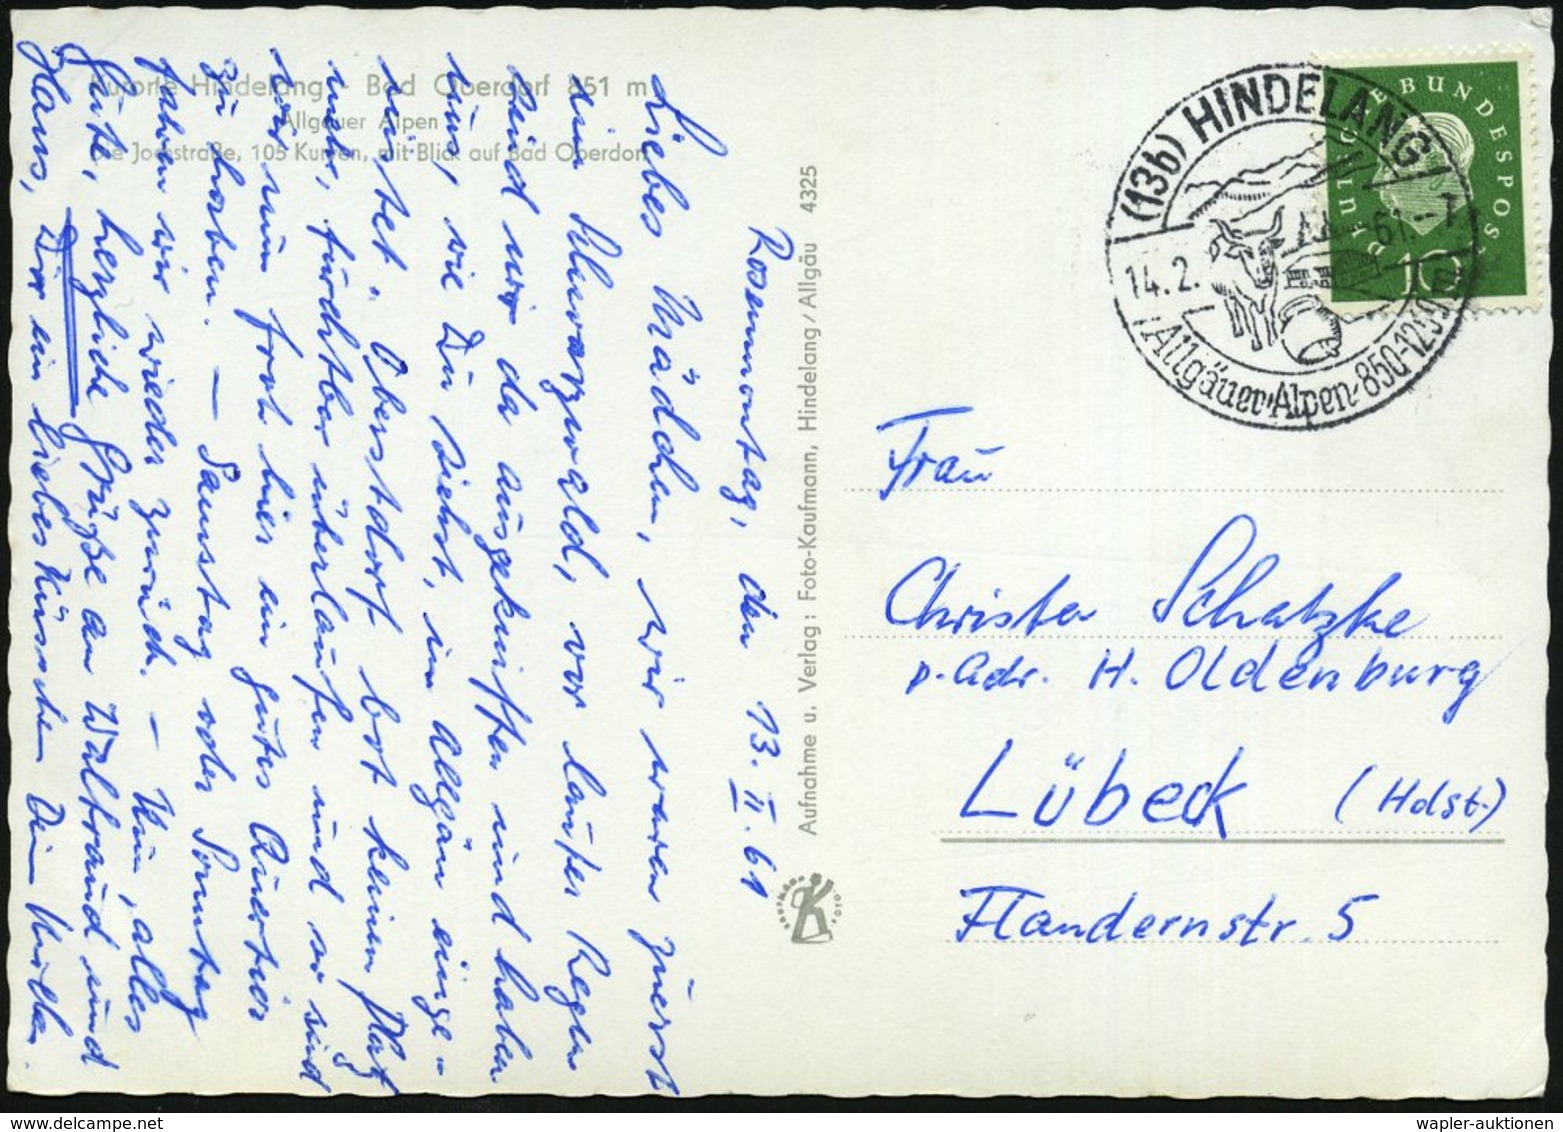 Kurorte Hindelang - Bad Oberdorf 851 m
Allgäuer Alpen
Die Jochstraße, 105 Kurven, mit Blick auf Bad Oberdorf
Rosenmontag, den 13. II. 61
Liebes Mädchen, wir waren zuerst
im Schwarzwald, vor lauter Regen
sind wir da ausgekniffen und haben
uns, wie Du siehst, im Allgäu einge-
nistet. Oberstdorf bot keinen Platz
mehr, furchtbar überlaufen und so sind
wir nun froh hier ein gutes Quartier
zu haben. – Samstag oder Sonntag
fahren wir wieder zurück. – Nun, alles
Gute, herzliche Grüße an Waltraud und
Hans, Dir ein liebes Küsschen Dein
Aufnahme u. Verlag: Foto-Kaufmann, Hindelang/Allgäu 4325
FOTO
(13b) HINDELANG
14.2.61.-7
Allgäuer Alpen-850-12
DEUTSCHE BUNDESPOST
10
Frau
Christa Schatzke
p. Adr. H. Oldenburg
Lübeck (Holst.)
Flandernstr. 5
wapler-auktionen